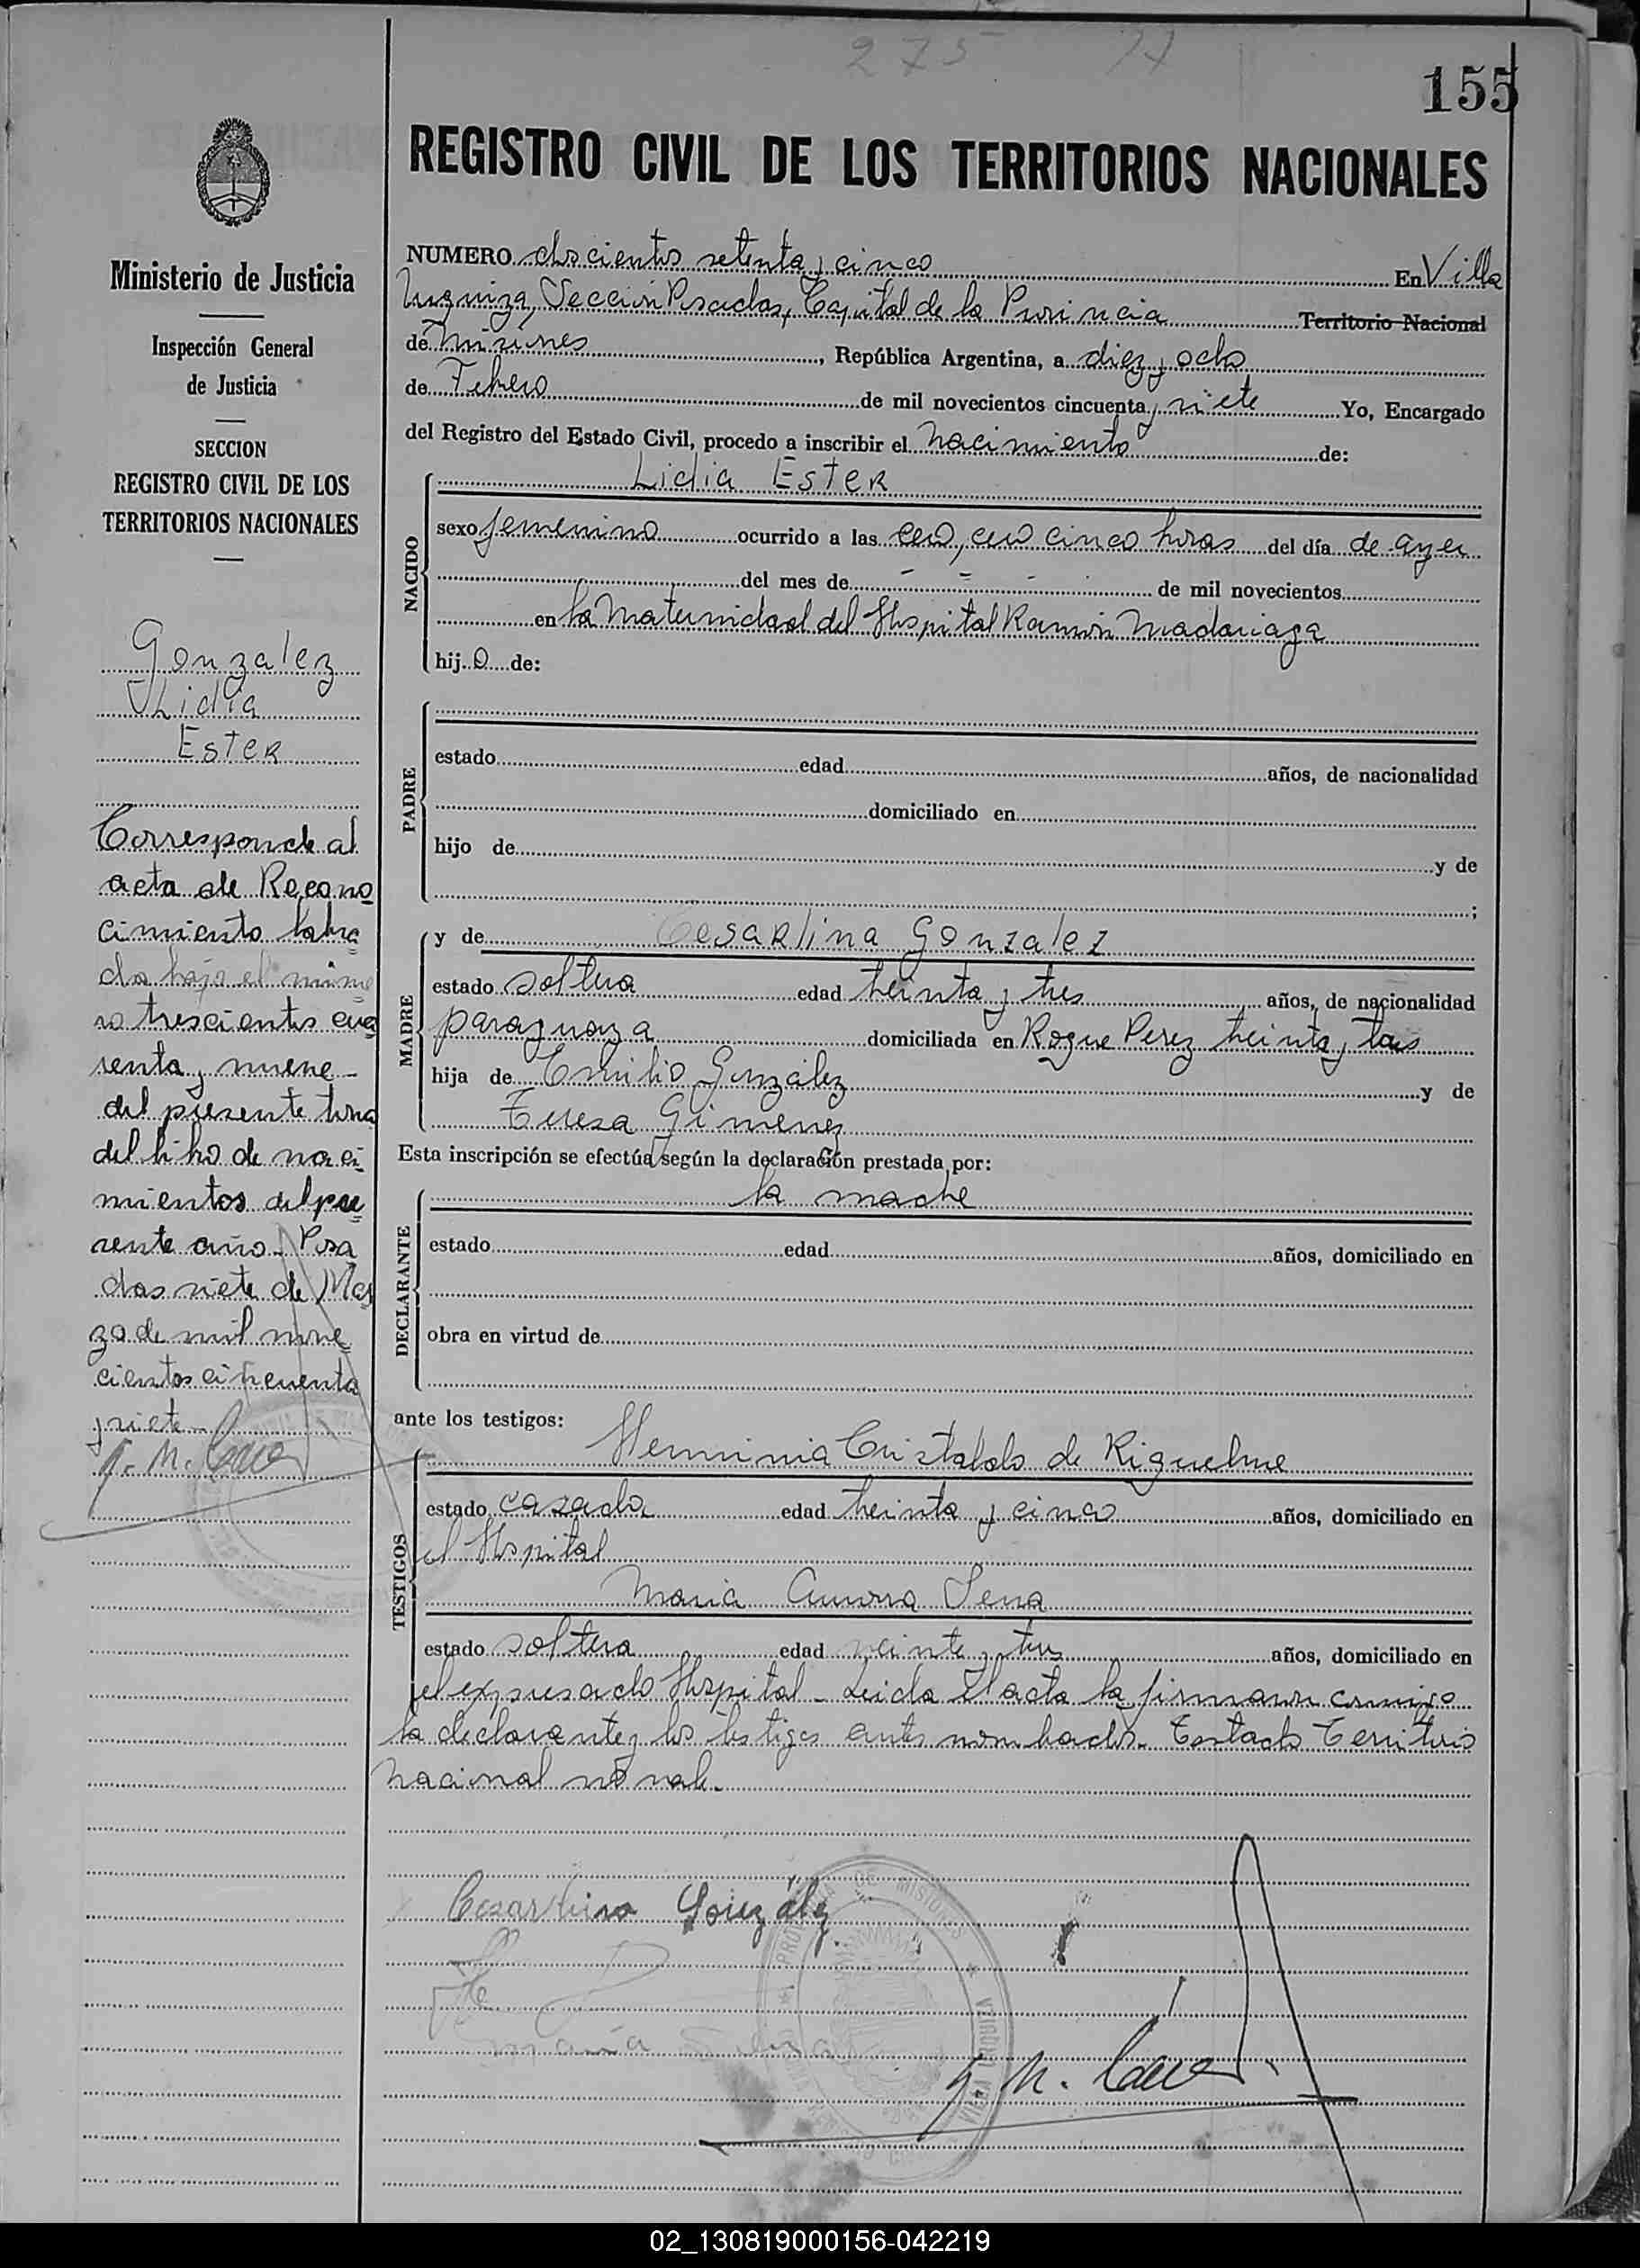 275
155
REGISTRO CIVIL DE LOS TERRITORIOS NACIONALES
Ministerio de Justicia
Inspección General
de Justicia
SECCION
REGISTRO CIVIL DE LOS
TERRITORIOS NACIONALES
Gonzalez
Lidia
Ester
Corresponde al
acta de Recono
cimiento labra
da bajo el núme
ro trescientos cua
renta y nueve
del presente tomo
del libro de naci
mientos del pre
sente año. Posa
das siete de Mar
zo de mil nove
cientos cincuenta
y siete
NUMERO doscientos setenta y cinco En Villa
Urquiza, Sección Posadas, Capital de la Provincia Territorio Nacional
de Misiones, República Argentina, a diez y ocho
de Febrero de mil novecientos cincuenta y siete Yo, Encargado
del Registro del Estado Civil, procedo a inscribir el nacimiento de:
NACIDO
Lidia Ester
sexo femenino ocurrido a las cero, cero cinco horas del día de ayer
del mes de - = - de mil novecientos
en la Maternidad del Hospital Ramón Madariaga
hija de:
PADRE
estado edad años, de nacionalidad
domiciliado en
hijo de y de
;
MADRE
y de Cesarlina Gonzalez
estado soltera edad treinta y tres años, de nacionalidad
paraguaya domiciliada en Roque Perez treinta y tres
hija de Emilio González y de
Teresa Gimenez
Esta inscripción se efectúa según la declaración prestada por:
DECLARANTE
la madre
estado edad años, domiciliado en
obra en virtud de
ante los testigos:
TESTIGOS
Herminia Cristaldo de Riquelme
estado casada edad treinta y cinco años, domiciliado en
el Hospital
Maria Sena
estado soltera edad veinte y tres años, domiciliado en
el expresado Hospital - Leida el acta la firmaron conmigo
la declarante y los testigos antes nombrados. Testado Territorio
Nacional no vale.
Cesarlina González
02_130819000156-042219